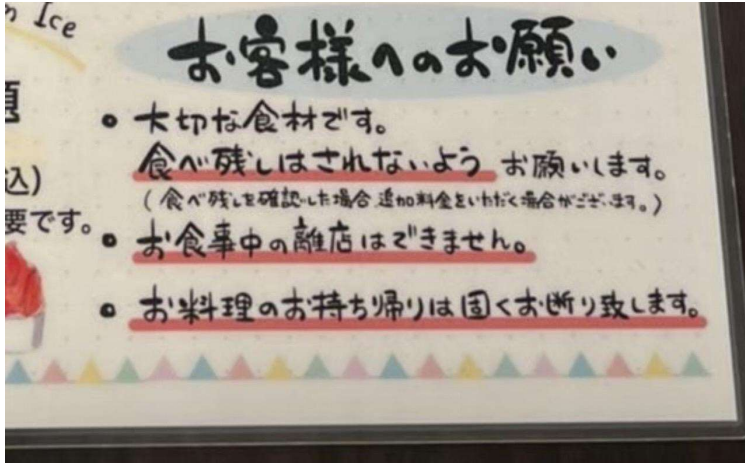 Ice
お客様へのお願い
• 大切な食材です。
食べ残しはされないよう お願いします。
(食べ残しを確認した場合、追加料金をいただく場合がございます。)
• お食事中の離店はできません。
• お料理のお持ち帰りは固くお断り致します。
込)
要です。